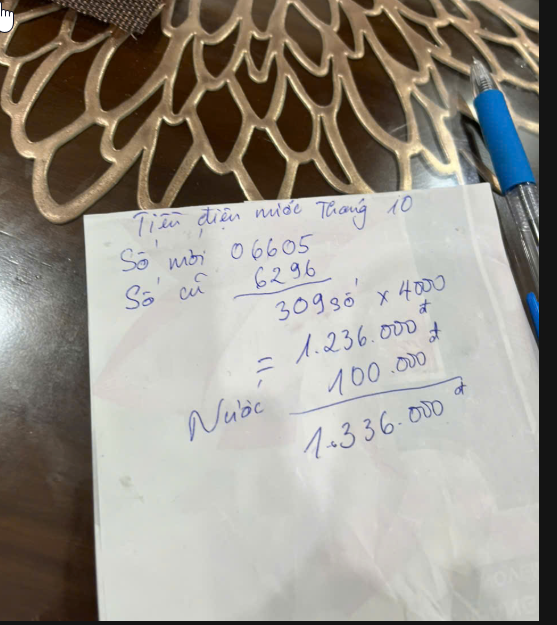 Tiền điện nước Tháng 10
Số mới 06605
Số cũ 6296
309 số x 4000đ
= 1.236.000đ
Nước 100.000đ
1.336.000đ